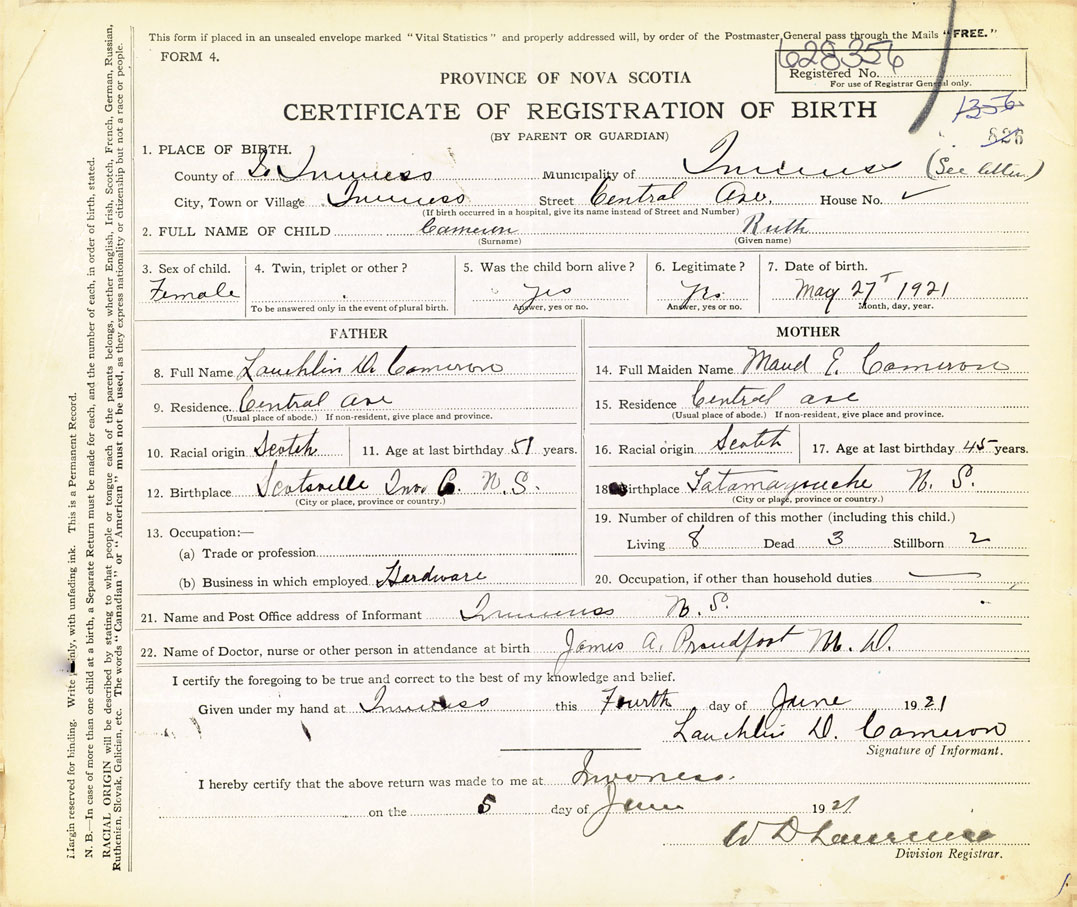 This form if placed in an unsealed envelope marked "Vital Statistics" and properly addressed will, by order of the Postmaster General pass through the Mails "FREE."
FORM 4.
628356
Registered No.
For use of Registrar General only.
PROVINCE OF NOVA SCOTIA
CERTIFICATE OF REGISTRATION OF BIRTH
1356
(BY PARENT OR GUARDIAN)
1. PLACE OF BIRTH.
County of Inverness Municipality of Inverness (See letter)
City, Town or Village Inverness Street Central Ave. House No.
(If birth occurred in a hospital, give its name instead of Street and Number)
2. FULL NAME OF CHILD Cameron Ruth
(Surname) (Given name)
3. Sex of child. 4. Twin, triplet or other? 5. Was the child born alive? 6. Legitimate? 7. Date of birth.
Female Yes Yes May 27 1921
To be answered only in the event of plural birth. Answer, yes or no. Answer, yes or no. Month, day, year.
FATHER
8. Full Name Lauchlin D. Cameron
9. Residence Central Ave
(Usual place of abode.) If non-resident, give place and province.
10. Racial origin Scotch 11. Age at last birthday 51 years.
12. Birthplace Scotsville Inv. C. N.S.
(City or place, province or country.)
13. Occupation:—
(a) Trade or profession
(b) Business in which employed Hardware
MOTHER
14. Full Maiden Name Maud E. Cameron
15. Residence Central Ave
(Usual place of abode.) If non-resident, give place and province.
16. Racial origin Scotch 17. Age at last birthday 45 years.
18 Birthplace Tatamagouche N.S.
(City or place, province or country.)
19. Number of children of this mother (including this child.)
Living 8 Dead 3 Stillborn 2
20. Occupation, if other than household duties
21. Name and Post Office address of Informant Inverness N.S.
22. Name of Doctor, nurse or other person in attendance at birth James A. Proudfoot M.D.
I certify the foregoing to be true and correct to the best of my knowledge and belief.
Given under my hand at Inverness this Fourth day of June 1921
Lauchlin D. Cameron
Signature of Informant.
I hereby certify that the above return was made to me at Inverness.
on the 5 day of June 1921
W D Lawrence
Division Registrar.
Margin reserved for binding. Write plainly, with unfading ink. This is a Permanent Record.
N. B.—In case of more than one child at a birth, a Separate Return must be made for each, and the number of each, in order of birth, stated.
RACIAL ORIGIN will be described by stating to what people or tongue each of the parents belongs, whether English, Irish, Scotch, French, German, Russian,
Ruthenian, Slovak, Galician, etc. The words "Canadian" or "American" must not be used, as they express nationality or citizenship but not a race or people.